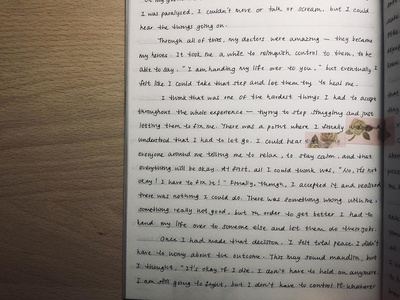 I was paralysed. I couldn't move or talk or scream, but I could
hear the things going on.
Through all of this, my doctors were amazing — they became
my heroes. It took me a while to relinquish control to them, to be
able to say, "I am handing my life over to you," but eventually I
felt like I could take that step and let them try to heal me.
I think that was one of the hardest things I had to accept
throughout the whole experience — trying to stop struggling and just
letting them to fix me. There was a point where I finally
understood that I had to let go. I could hear
everyone around me telling me to relax, to stay calm, and that
everything will be okay. At first, all I could think was, "No, it's not
okay! I have to fix it!" Finally, though, I accepted it and realized
there was nothing I could do. There was something wrong with me,
something really not good, but in order to get better I had to
hand my life over to someone else and let them do their jobs.
Once I had made that decision, I felt total peace. I didn't
have to worry about the outcome. This may sound mandlin, but
I thought, "It's okay if I die. I don't have to hold on anymore.
I am still going to fight, but I don't have to control it. Whatever